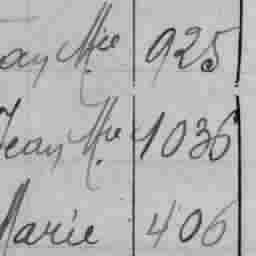 an Mie 925
Jean Mie 1036
Marie 406